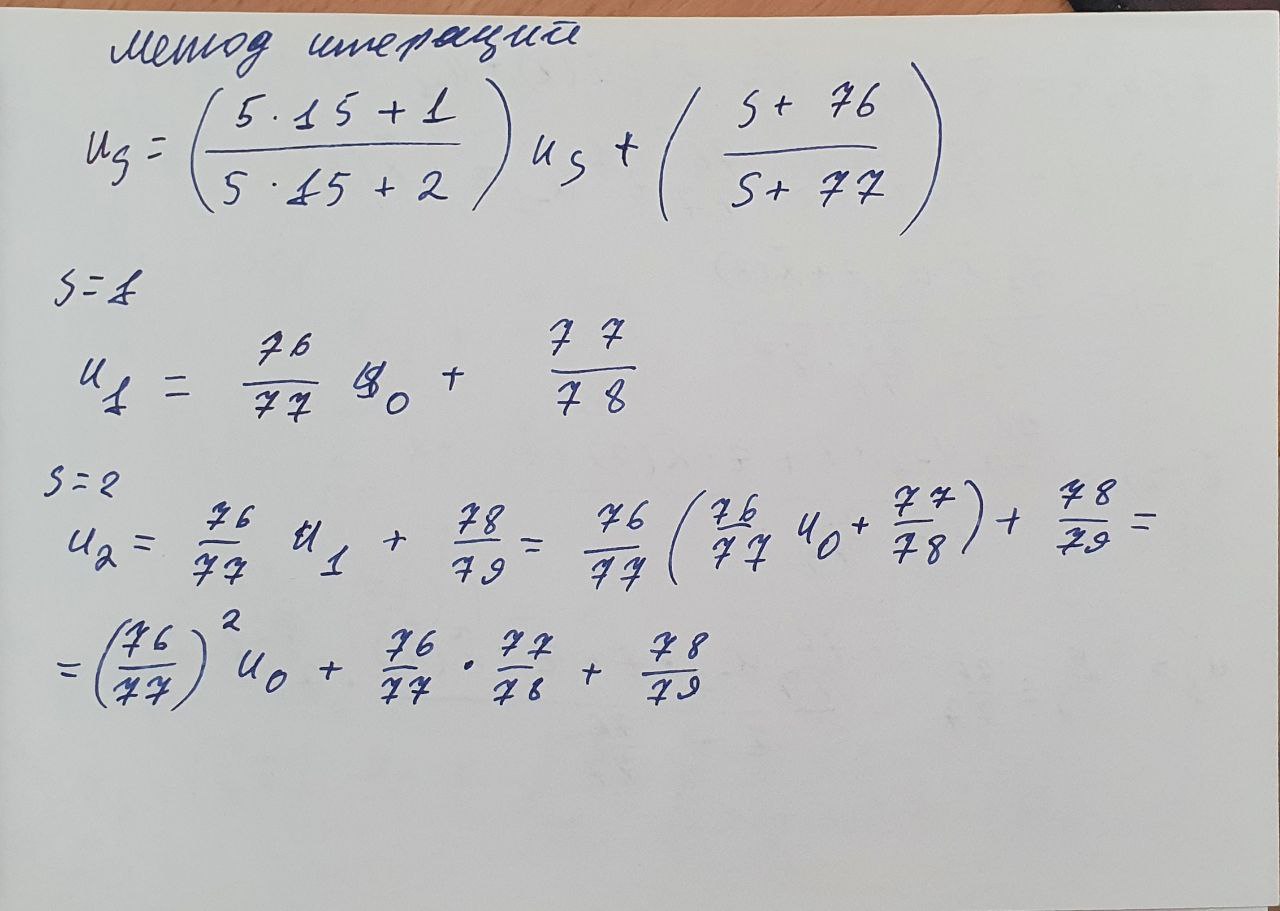 Метод итераций
u_s = ( (5·15+1) / (5·15+2) ) u_s + ( (s+76) / (s+77) )
s=1
u_1 = 76/77 u_0 + 77/78
s=2
u_2 = 76/77 u_1 + 78/79 = 76/77 ( 76/77 u_0 + 77/78 ) + 78/79 =
= (76/77)^2 u_0 + 76/77 · 77/78 + 78/79